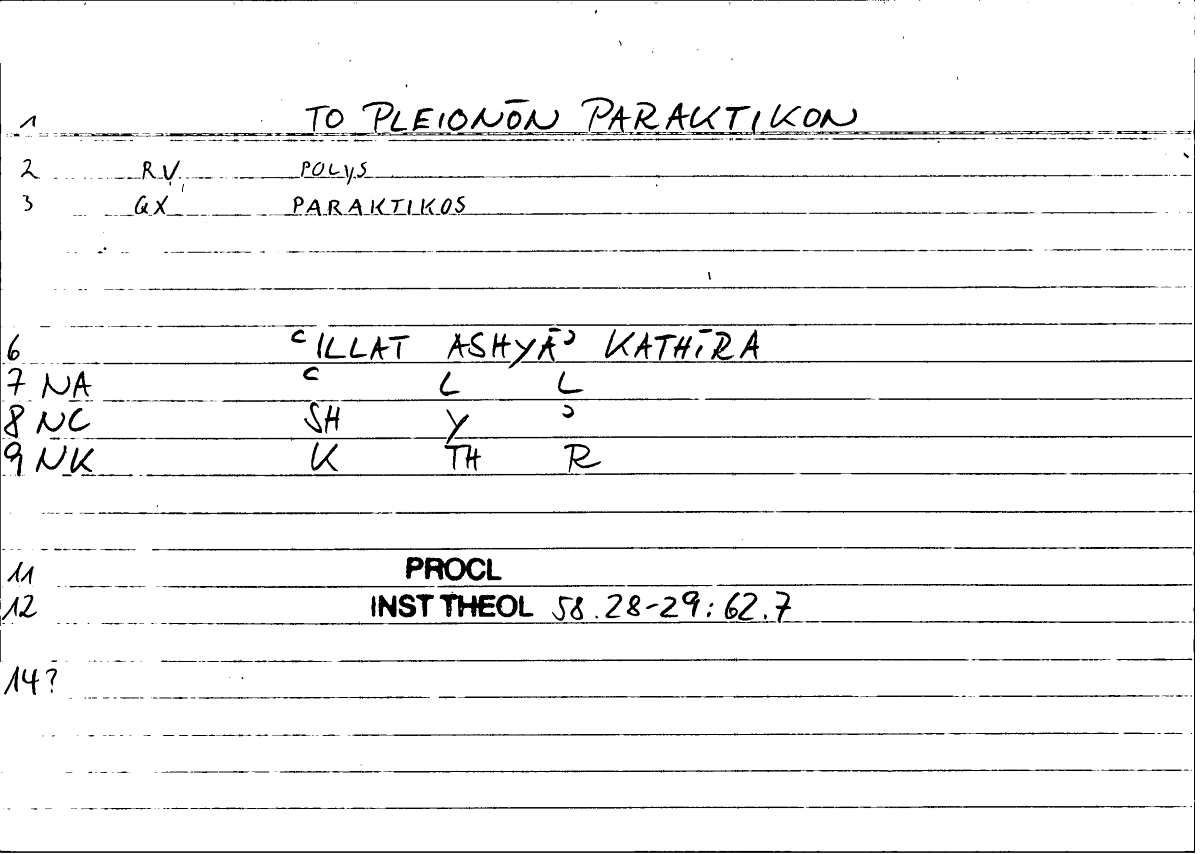 1 TO PLEIONŌN PARAKTIKON
2 RV POLYS
3 GX PARAKTIKOS
6 ʿILLAT ASHYĀʾ KATHĪRA
7 NA ʿ L L
8 NC SH Y ʾ
9 NK K TH R
11 PROCL
12 INST THEOL 58.28-29:62.7
14?